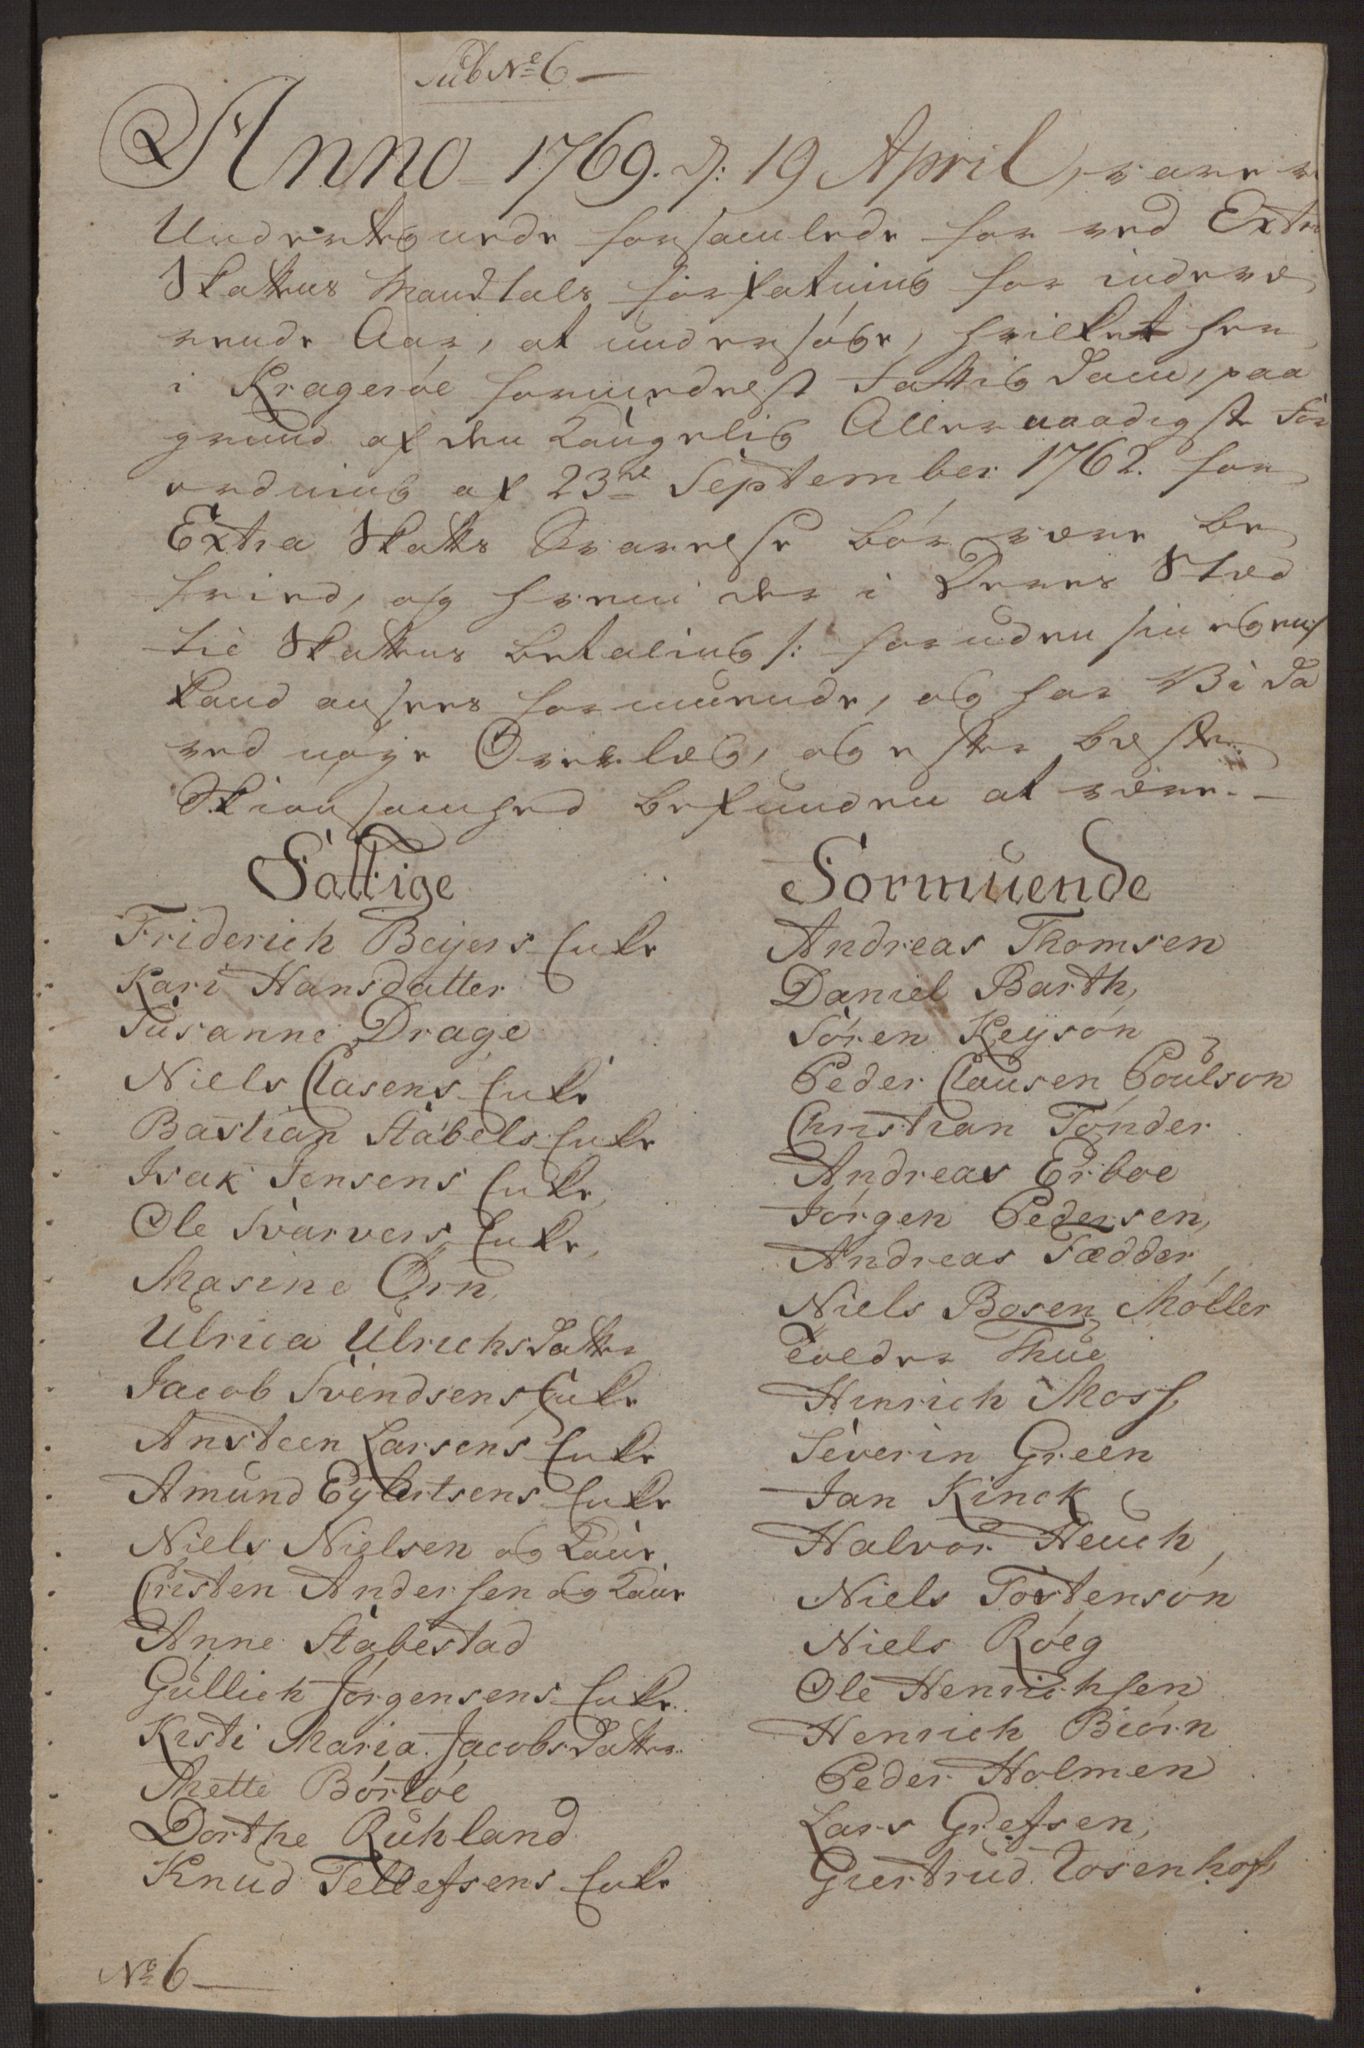 Sub No 6
Anno 1769. d: 19 April, vare vi
Undertegnede forsamlede for ved Extra
Skattens Mandtals forfatning for indevæ
rende Aar, at undersøge, hvilket her
i Kragerøe formedelst Fattigdom, paa
grund af den Kongelig Allernaadigste For
ordning af 23de September 1762. for
Extra Skatts Svarelse bør være be
fried, og hvem der i Deres Stæd
til Skattens betaling /: foruden sin egen /
kand ansees formuende, og har Vi da
ved nøye Overlæg, og efter beste
Skionsomhed befunden at være.
Fattige
Friderich Beyers Enke
Kari Hansdatter
Susanne Drage
Niels Clasens Enke
Bastian Stabels Enke
Isak Jensens Enke,
Ole Svarvers Enke,
Masine Ørn,
Ulrica Ulrichsdatter
Jacob Svendsens Enke
Ansteen Larsens Enke
Amund Eylertsens Enke
Niels Nielsen og Kone
Cresten Andersen og Kone
Anne Stabestad
Gullich Jørgensens Enke.
Kisti Maria Jacobsdatter.
Mette Børtøe
Dorthe Ruhland
Knud Tellefsens Enke
Formuende
Andreas Thomsen
Daniel Barth,
Søren Keysøn
Peder Clausen Poulson
Christian Tønder
Andreas Erboe
Jørgen Pedersen,
Andreas Fædder,
Niels Bosen Møller
Peder Thue
Hinrich Moss,
Severin Green
Jan Kinck
Halvor Heuch,
Niels Tortensøn
Niels Røeg
Ole Henrichsen
Henrich Biørn
Peder Holmen
Lars Grefsen,
Giertrud Rosenhof
No 6